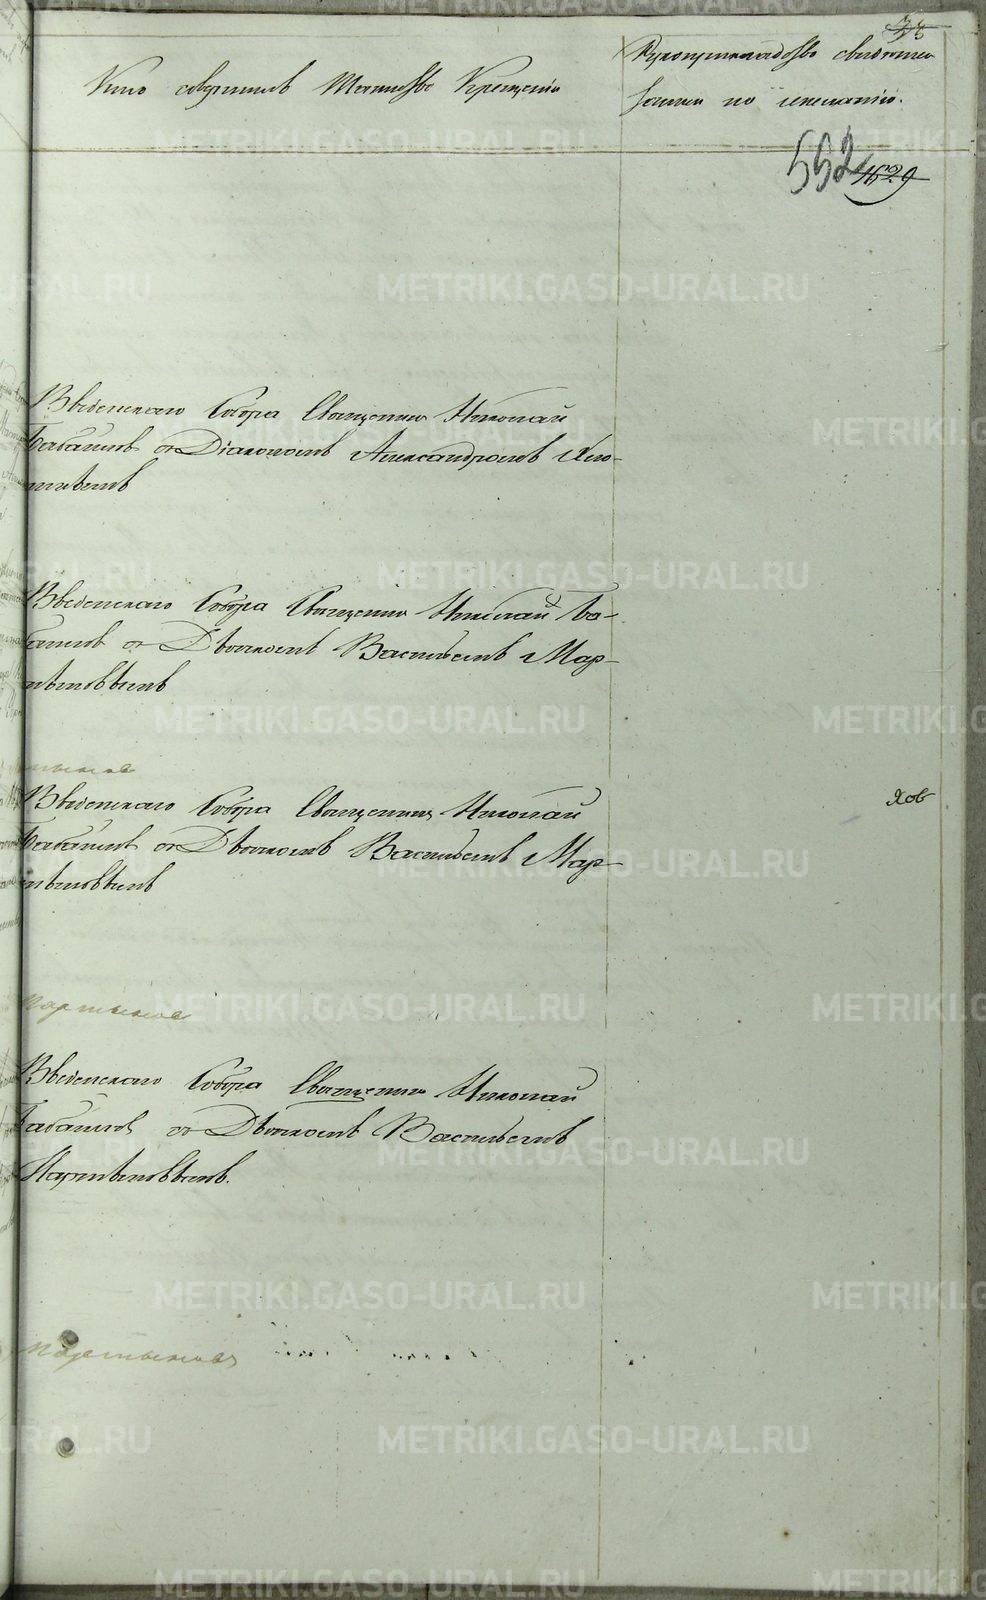 Кто совершалъ Таинство Крещенія
Рукоприкладство свидѣтелей
записи по желанію.
552
1629
Введенскаго Собора Священникъ Николай
Бабановъ съ Діакономъ Александромъ
Введенскаго Собора Священникъ Николай Ба-
бановъ съ Діакономъ Васильемъ Мар-
тыновымъ
Введенскаго Собора Священникъ Николай
Бабановъ съ Діакономъ Васильемъ Мар-
тыновымъ
Мартынов
Введенскаго Собора Священникъ Николай
Бабановъ съ Діакономъ Васильемъ
Мартыновымъ.
Мартыновъ
METRIKI.GASO-URAL.RU